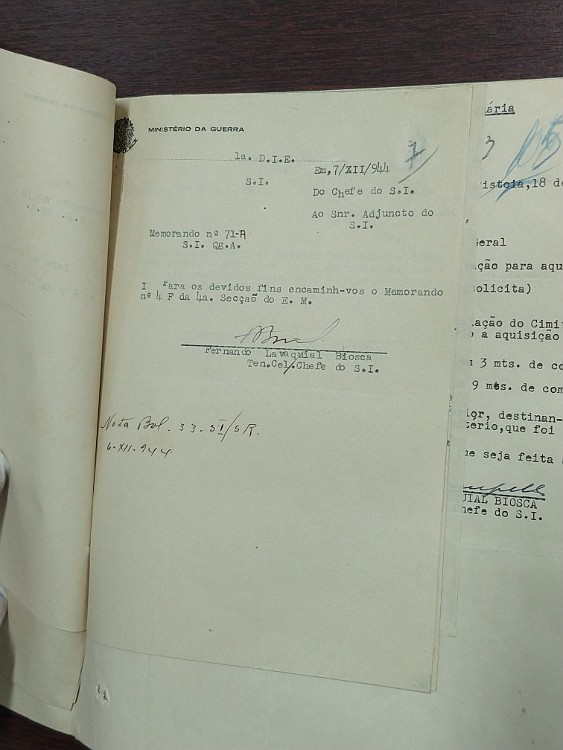 MINISTÉRIO DA GUERRA
1a. D.I.E.
S.I.
Em, 7/XII/944
7
Do Chefe do S.I.
Ao Snr. Adjuncto do
S.I.
Memorando nº 71-R
S.I. Qg.A.
I Para os devidos fins encaminh-vos o Memorando
nº 4 F da 4a. Secção do E. M.
Fernando Lavaquial Biosca
Ten.Cel.Chefe do S.I.
Nota Bol. 33-SI/SR.
6-XII-944
ária
3
105
istoia,18 de
eral
ção para aqu
olicita)
ação do Cimi
a aquisição
3 mts. de co
9 mts. de com
or, destinan-
ério,que foi
e seja feita
UIAL BIOSCA
hefe do S.I.